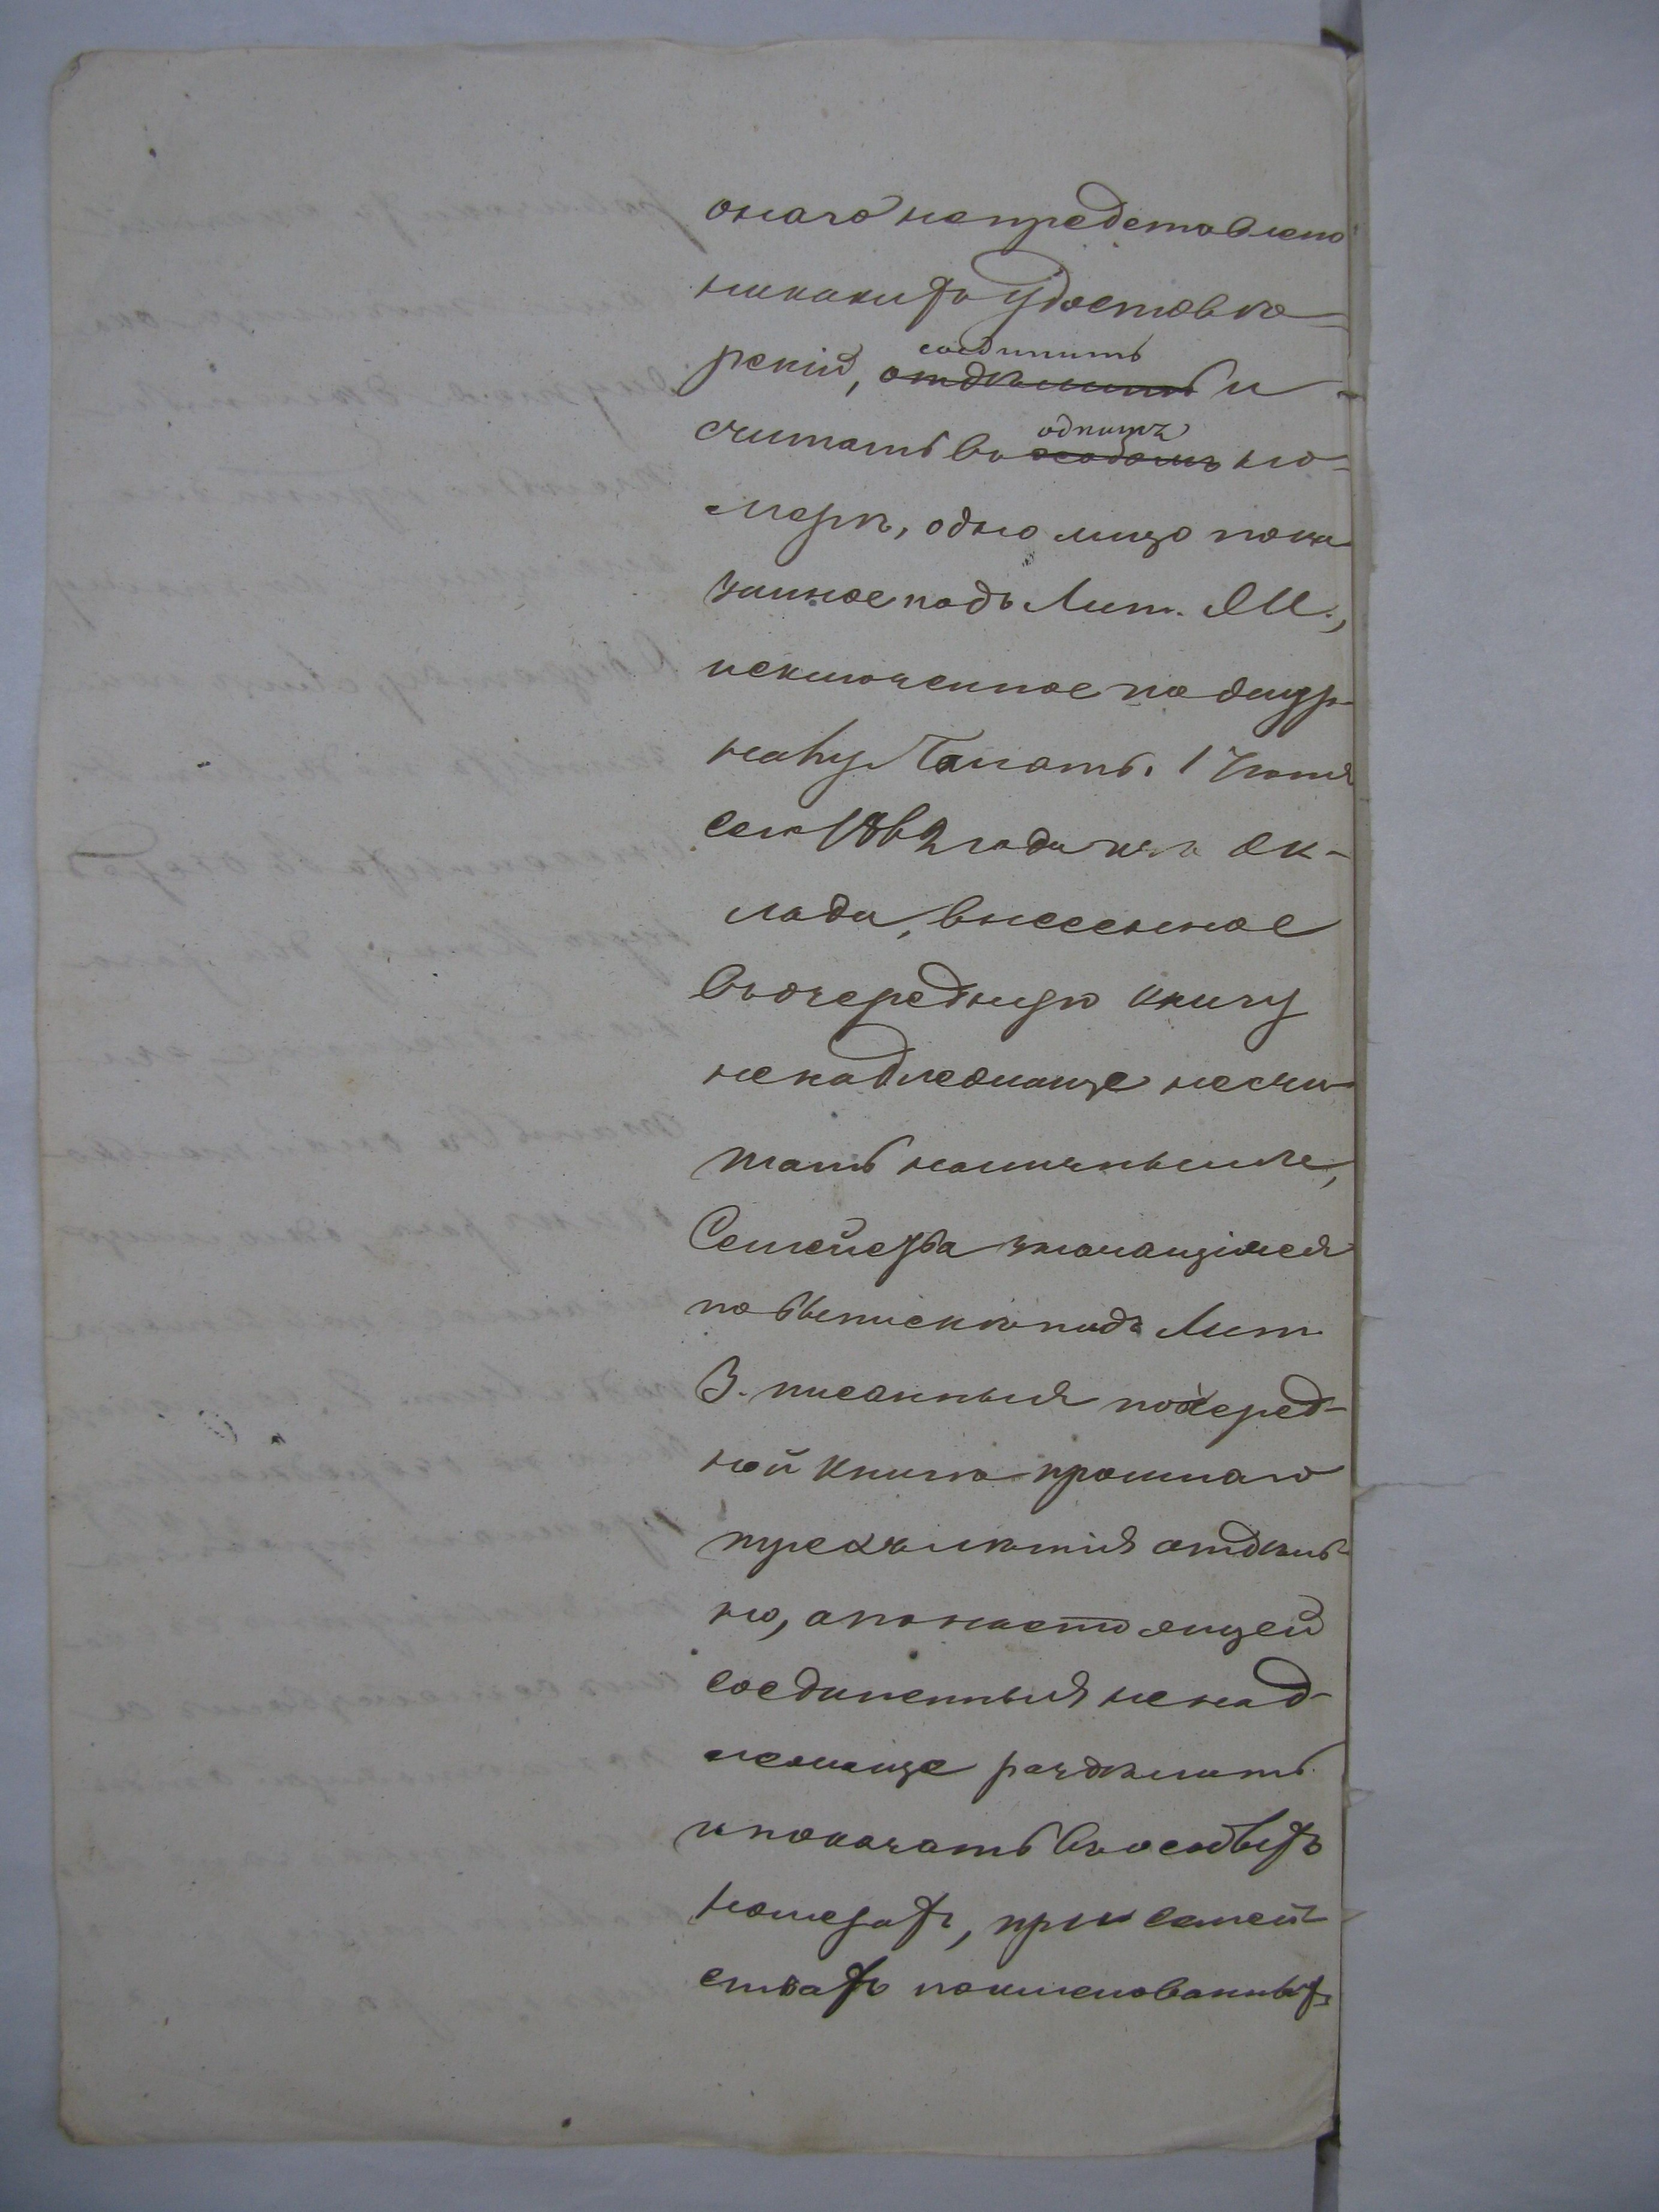 онаго непредставлено
никакихъ удостовѣ-
реній, соединить отдѣлить и
считать въ однимъ особомъ но-
мерѣ, одно лицо пока
занное подъ Лит. М.,
исключенное по опред
Палаты. 1 Іюня
сего 1862 года изъ ок-
лада, внесенное
въочередную книгу
ненадлежаще несчи-
тать наличнымъ,
Семейства значащіяся
по выпискѣ подъ Лит
З. писанныя поочеред-
ной книгѣ прошлаго
трехълѣтія отдѣль-
но, апонастоящей
соединенныя ненад-
лежаще раздѣлить
ипоказать въособыхъ
номерахъ, при семей
ствахъ поименованныхъ